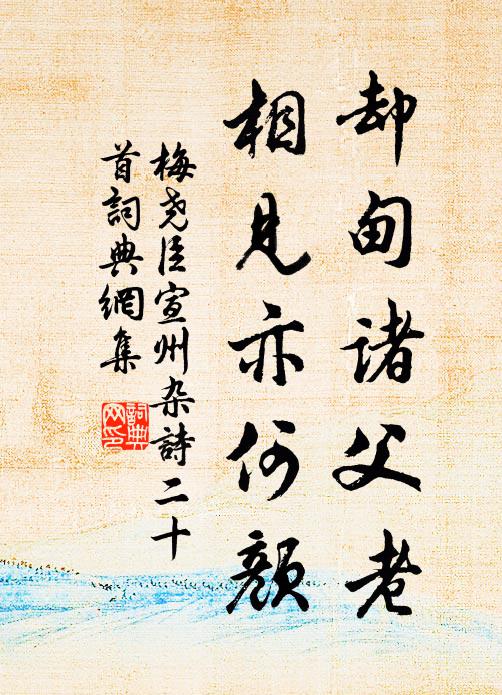 却向诸父老
相见亦何颜
梅尧臣宣州杂诗二十
首词典網集
詞典
网印